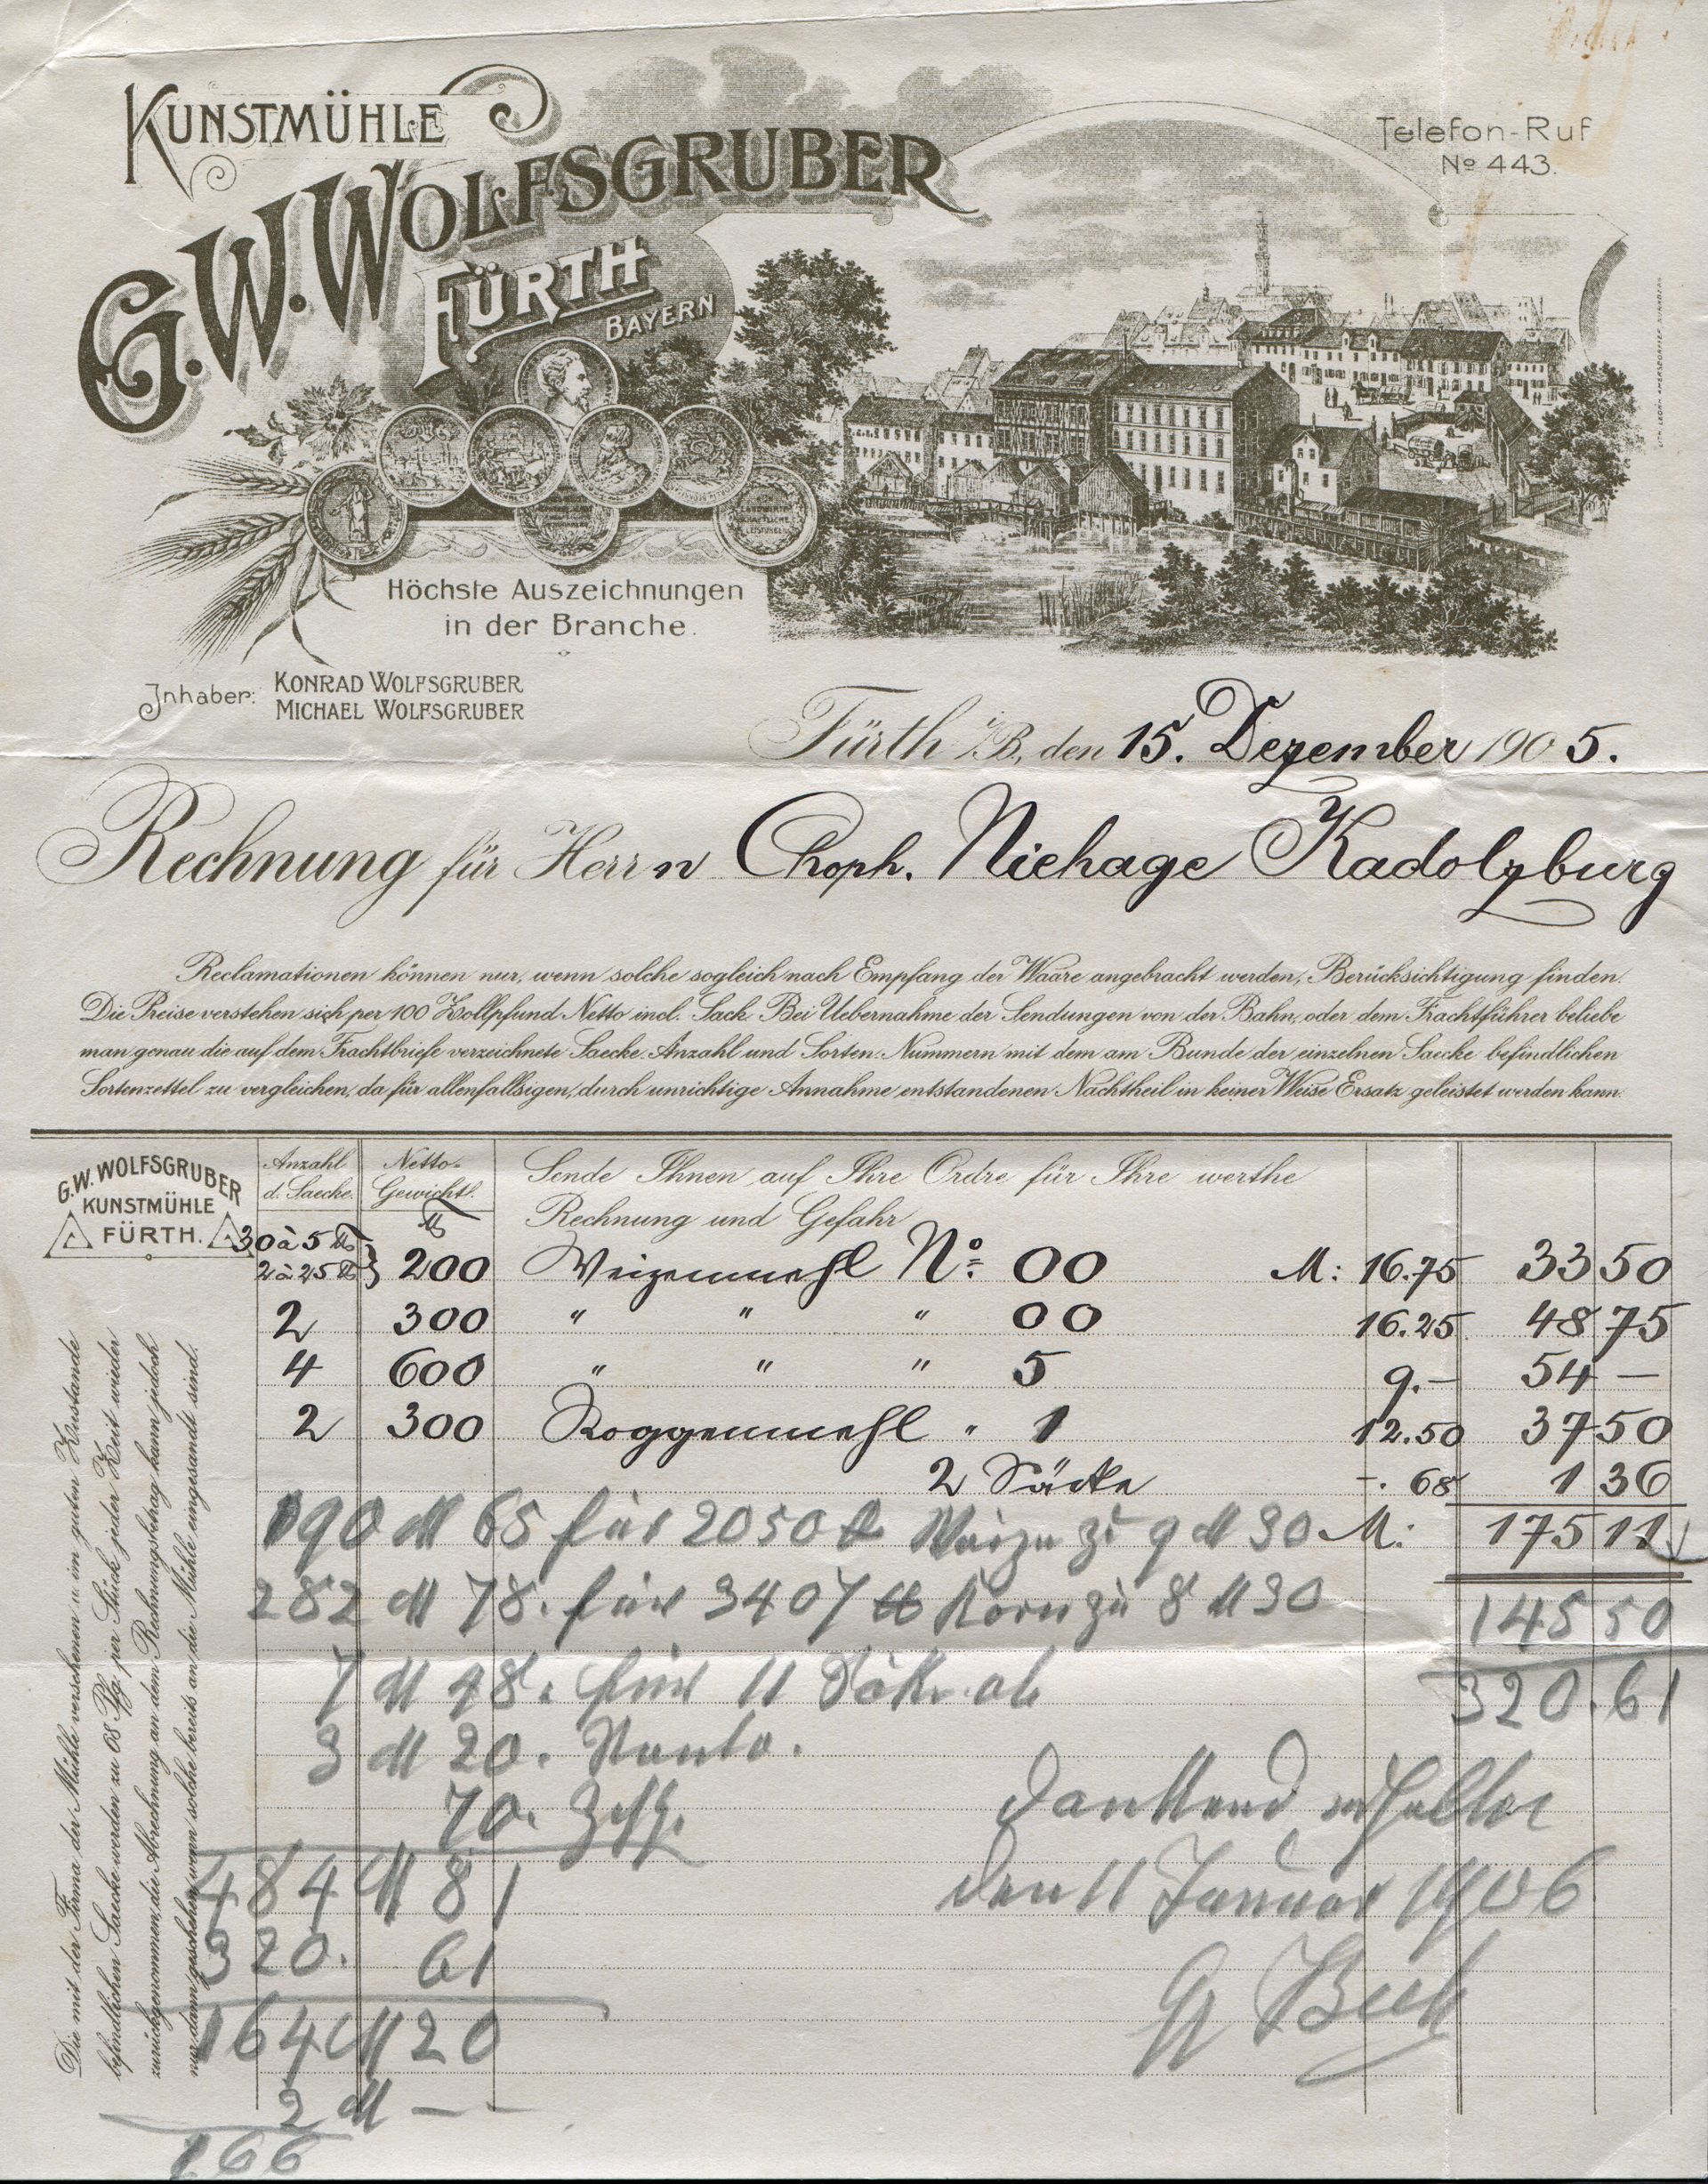 KUNSTMÜHLE
G.W. WOLFSGRUBER
FÜRTH
BAYERN
Telefon-Ruf
No 443.
Höchste Auszeichnungen
in der Branche.
Inhaber: KONRAD WOLFSGRUBER
MICHAEL WOLFSGRUBER
Fürth i/B., den 15. Dezember 1905.
Rechnung für Herrn Choph. Niehage Kadolzburg
Reclamationen können nur, wenn solche sogleich nach Empfang der Waare angebracht werden, Berücksichtigung finden.
Die Preise verstehen sich per 100 Zollpfund Netto incl. Sack. Bei Uebernahme der Sendungen von der Bahn, oder dem Frachtführer beliebe
man genau die auf dem Frachtbriefe verzeichnete Saecke Anzahl und Sorten-Nummern mit dem am Bunde der einzelnen Saecke befindlichen
Sortenzettel zu vergleichen, da für allenfallsigen, durch unrichtige Annahme entstandenen Nachtheil in keiner Weise Ersatz geleistet werden kann.
G.W. WOLFSGRUBER
KUNSTMÜHLE
FÜRTH.
Anzahl d. Saecke. Netto-Gewicht. Sende Ihnen auf Ihre Ordre für Ihre werthe
Rechnung und Gefahr
30 à 5 ℔
2 à 25 ℔ } 200 Weizenmehl No: 00 M: 16.75 33 50
2 300 " " " 00 16.25 48 75
4 600 " " " 5 9.– 54 –
2 300 Roggenmehl " 1 12.50 37 50
2 Säcke –. 68 1 36
M: 175 11
190 M 65 für 2050 ℔ Weizen zu 9 M 30
282 M 78. für 3407 ℔ Korn zu 8 M 30
145 50
7 M 48. für 11 Säke ab
320.61
3 M 20. Konto.
70.
484 M 81
320. 61
164 M 20
2 M – –
166
Dankend erhalten
den 11 Januar 1906
Die mit der Firma der Mühle versehenen u. im guten Zustande
befindlichen Saecke werden zu 68 Pfg. per Stück jeder Zeit wieder
zurückgenommen, die Abrechnung an dem Rechnungsbetrag kann jedoch
nur dann geschehen, wenn solche bereits an die Mühle eingesandt sind.